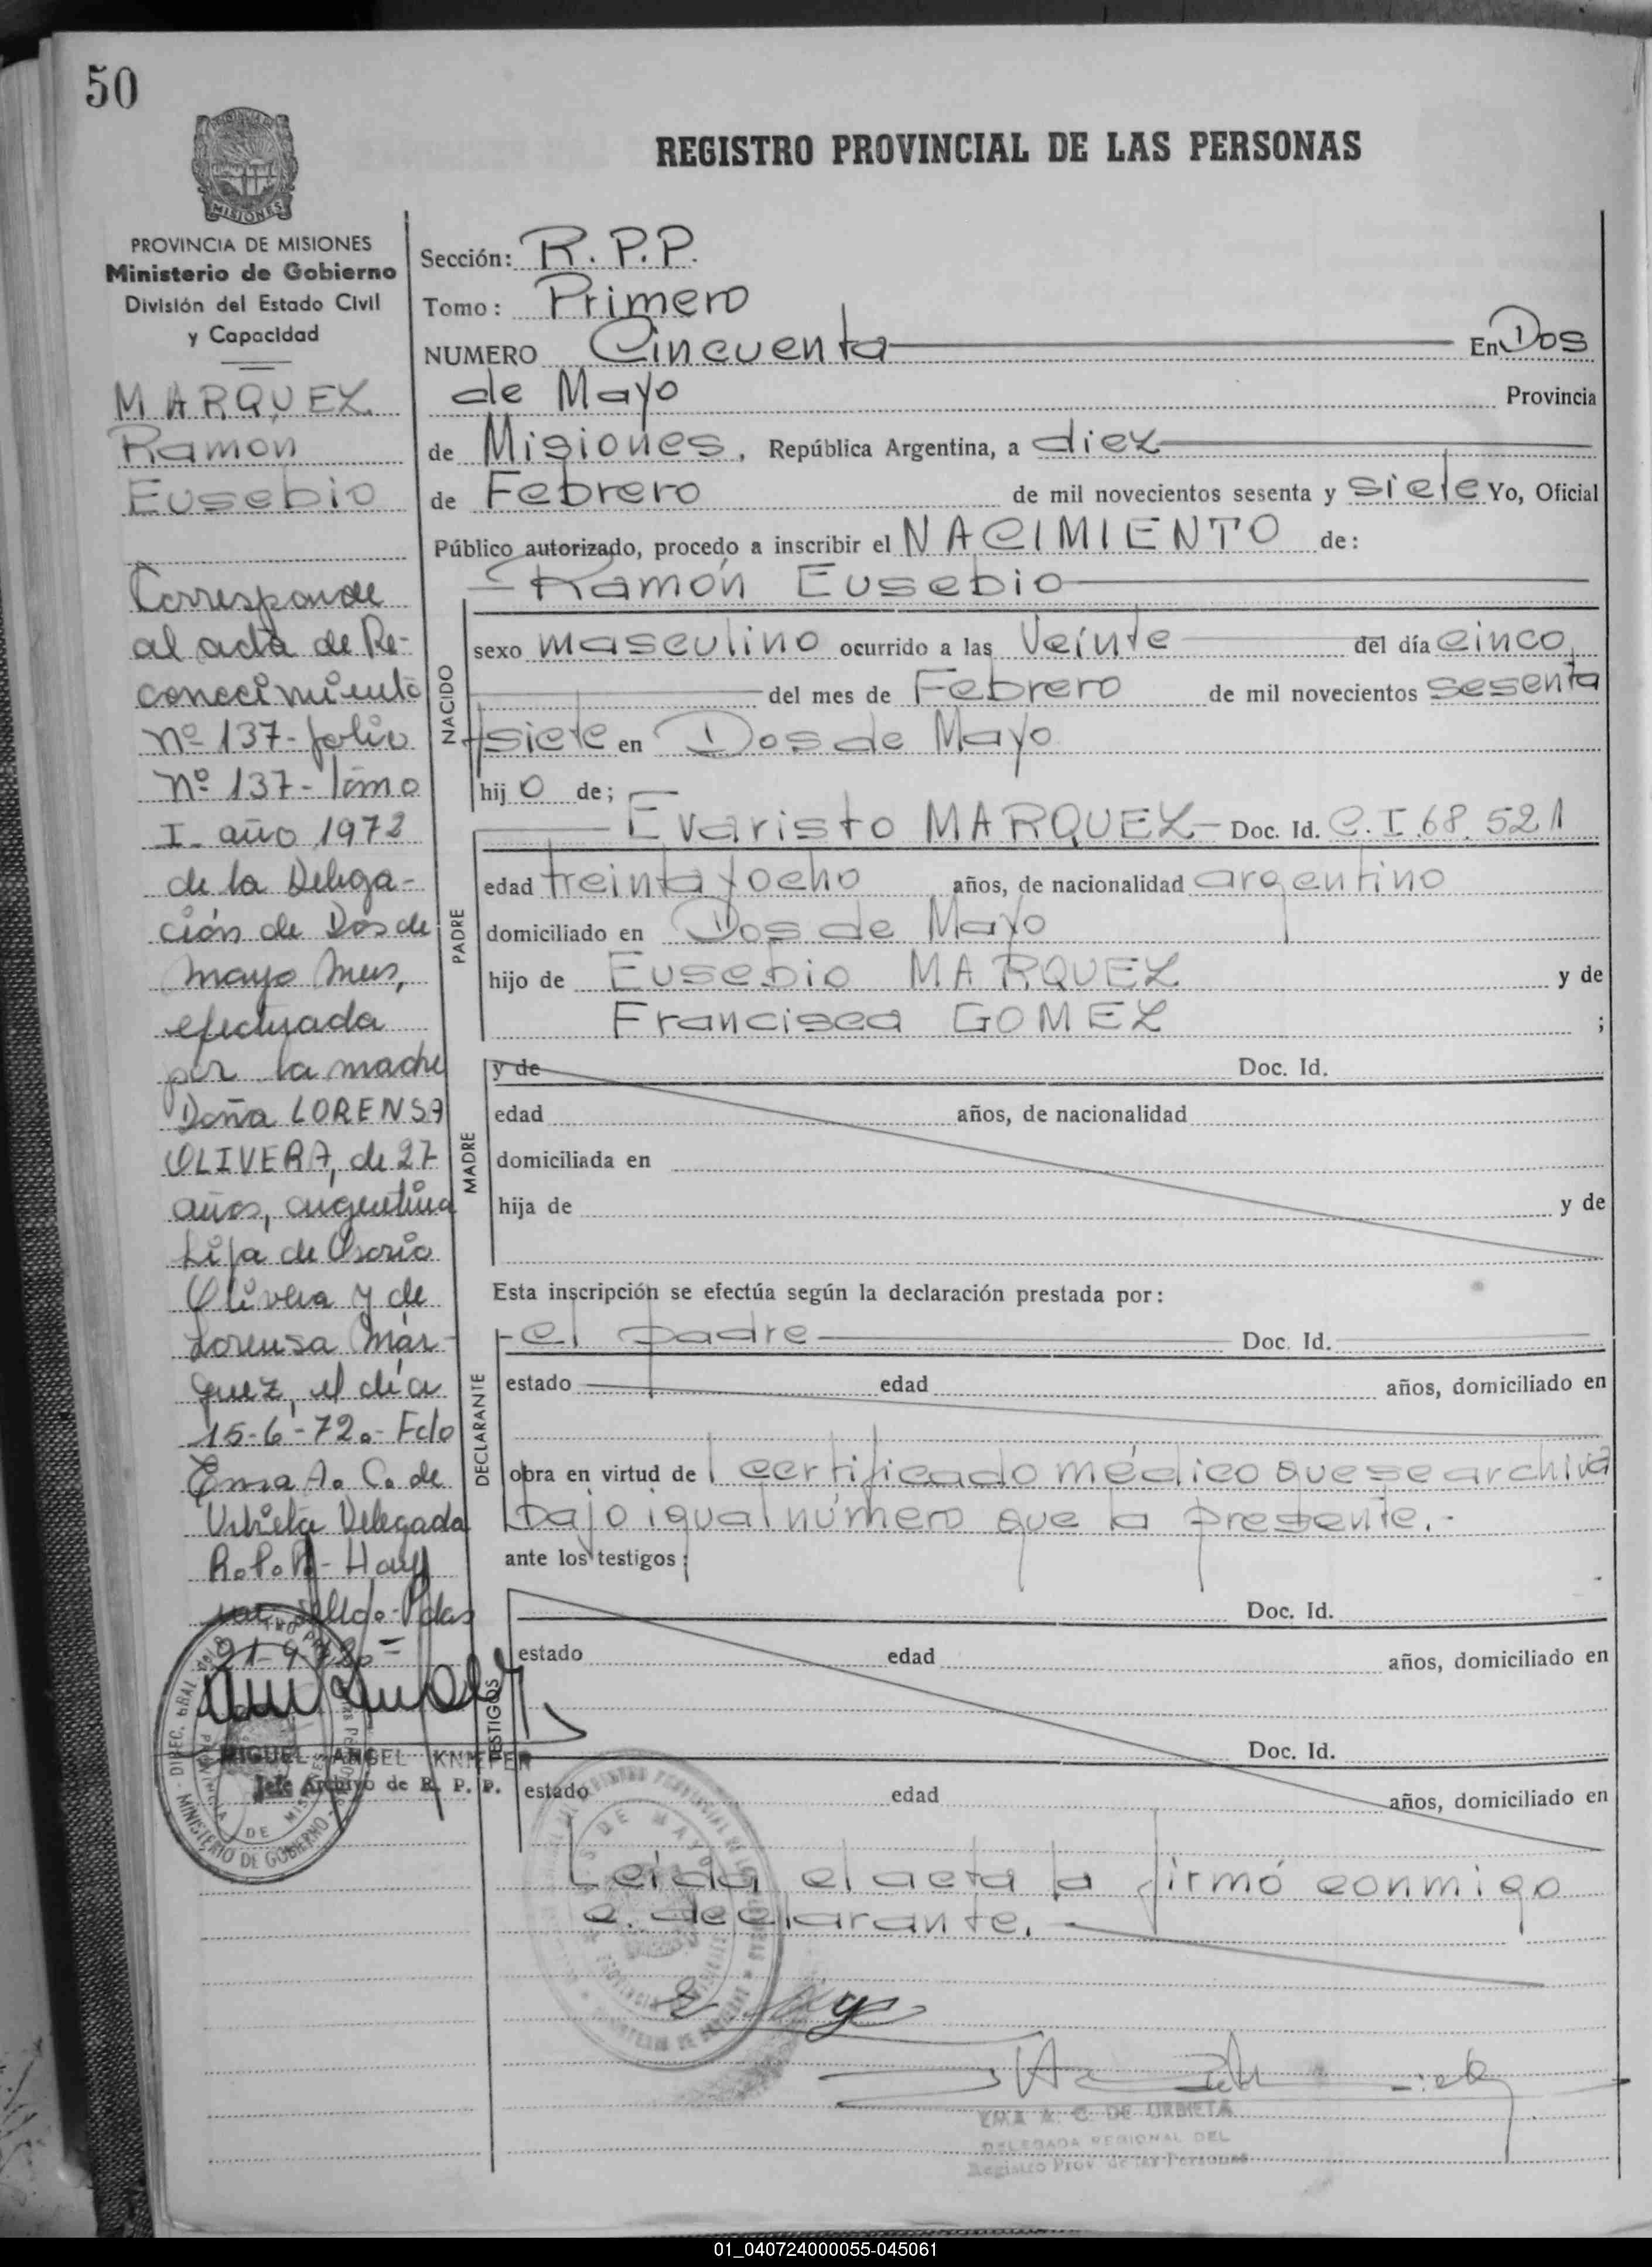 50
REGISTRO PROVINCIAL DE LAS PERSONAS
MISIONES
PROVINCIA DE MISIONES
Ministerio de Gobierno
División del Estado Civil
y Capacidad
MARQUEZ
Ramon
Eusebio
Corresponde
al acta de Re-
conocimiento
Nº 137-folio
Nº 137-Tomo
I- año 1972
de la Delega-
ción de Dos de
Mayo Mnes,
efectuada
por la madre
Doña LORENSA
OLIVERA, de 27
años, argentina
hija de Osorio
Olivera y de
Lorensa Már-
quez, el día
15-6-72.- Fdo
Ema A. C. de
Urbieta Delegada
R.P.P.- Hay
Pdas
MIGUEL ANGEL KNIEPER
Jefe Archivo de R. P. P.
MINISTERIO DE GOBIERNO
Sección: R.P.P.
Tomo: Primero
NUMERO Cincuenta En Dos
de Mayo Provincia
de Misiones, República Argentina, a diez
de Febrero de mil novecientos sesenta y siete Yo, Oficial
Público autorizado, procedo a inscribir el NACIMIENTO de:
Ramón Eusebio
NACIDO
sexo masculino ocurrido a las Veinte del día cinco
del mes de Febrero de mil novecientos sesenta
y siete en Dos de Mayo
hijo de;
PADRE
Evaristo MARQUEZ- Doc. Id. C.I.68.521
edad treinta y ocho años, de nacionalidad argentino
domiciliado en Dos de Mayo
hijo de Eusebio MARQUEZ y de
Francisca GOMEZ ;
MADRE
y de Doc. Id.
edad años, de nacionalidad
domiciliada en
hija de y de
Esta inscripción se efectúa según la declaración prestada por:
DECLARANTE
el padre Doc. Id.
estado edad años, domiciliado en
obra en virtud de l certificado médico que se archiva
bajo igual número que la presente.-
ante los testigos;
TESTIGOS
Doc. Id.
estado edad años, domiciliado en
Doc. Id.
estado edad años, domiciliado en
Leida el acta la firmó conmigo
el declarante.
EMA A. C. DE URBIETA
DELEGADA REGIONAL DEL
Registro Prov. de las Personas
01_040724000055-045061